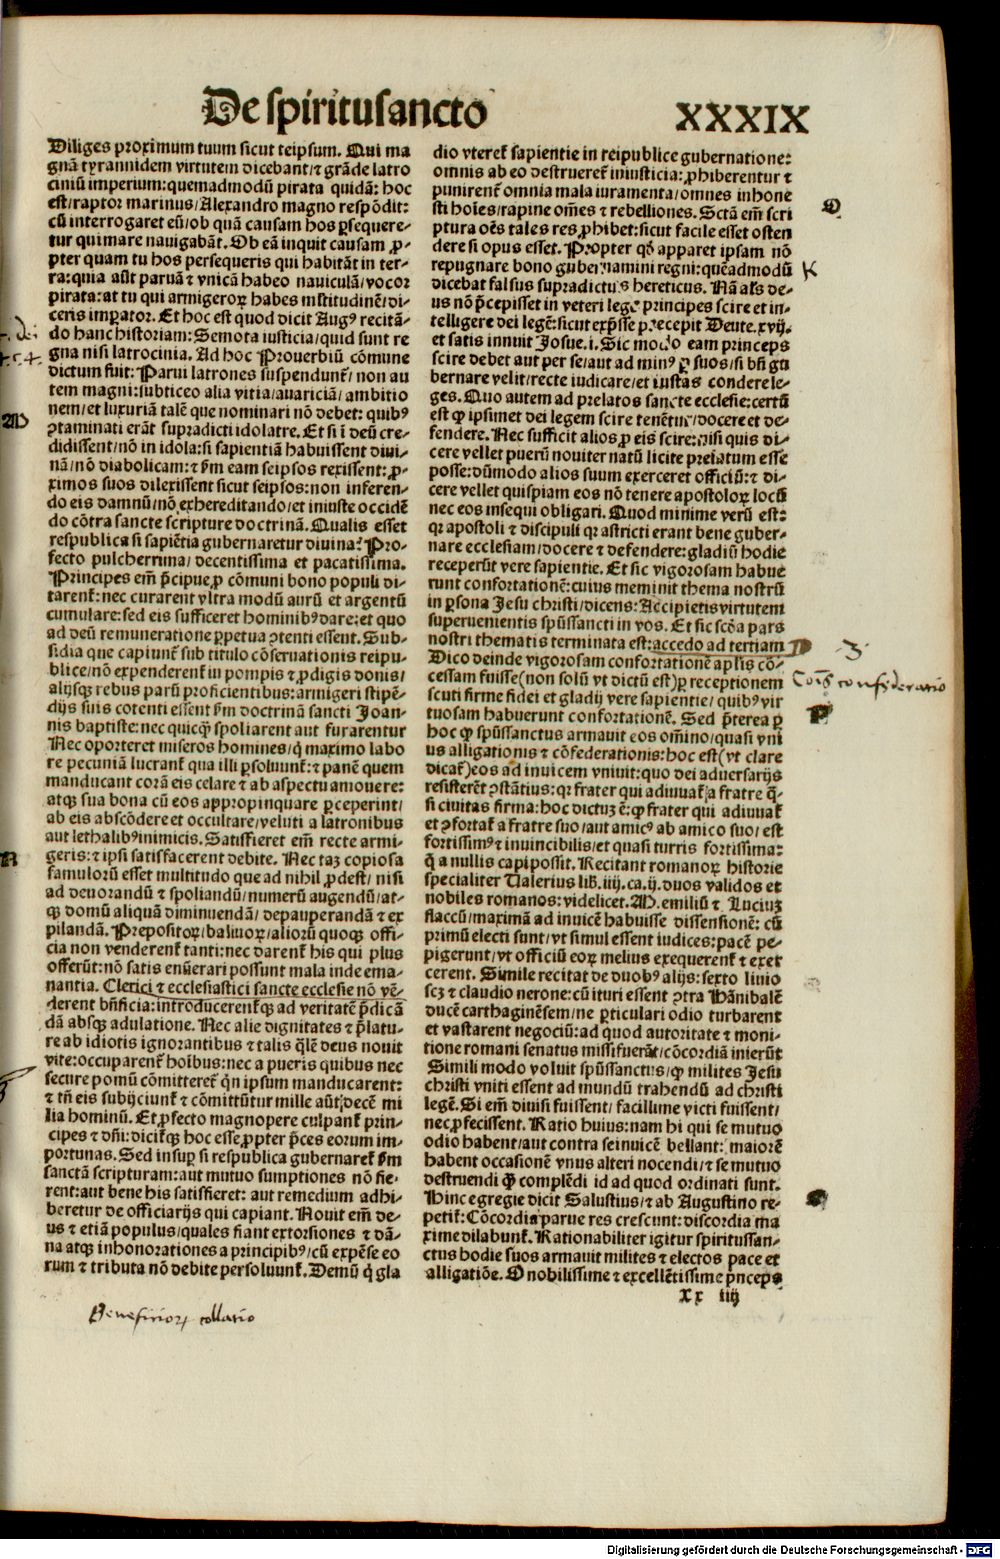 De spiritusancto
XXXIX
Diliges proximum tuum sicut teipsum. Qui ma
gnā tyrannidem virtutem dicebant/ ⁊ grāde latro
ciniū imperium: quemadmodū pirata quidā: hoc
est/ raptor marinus/ Alexandro magno respōdit:
cū interrogaret eū/ ob quā causam hos ꝑsequere-
tur qui mare nauigabāt. Ob eā inquit causam ꝓ-
pter quam tu hos persequeris qui habitāt in ter-
ra: quia aūt paruā ⁊ vnicā habeo nauiculā/ vocor
pirata: at tu qui armigeroꝝ habes multitudinē/ di-
ceris imperator. Et hoc est quod dicit Augꝰ recitā-
do hanc historiam: Semota iusticia/ quid sunt re
gna nisi latrocinia. Ad hoc Prouerbiū cōmune
dictum fuit: Parui latrones suspendunt̄/ non au
tem magni: subticeo alia vitia/ auariciā/ ambitio
nem/ et luxuriā talē que nominari nō debet: quibꝰ
ꝯtaminati erāt supradicti idolatre. Et si ī deū cre-
didissent/ nō in idola: si sapientiā habuissent diui-
nā/ nō diabolicam: ⁊ ẜm eam seipsos rexissent: ꝓ-
ximos suos dilexissent sicut seipsos: non inferen-
do eis damnū/ nō exhereditando/ et iniuste occidē
do cōtra sancte scripture doctrinā. Qualis esset
respublica si sapiētia gubernaretur diuina? Pro-
fecto pulcherrima/ decentissima et pacatissima.
Principes em̄ p̄cipue ꝓ cōmuni bono populi di-
tarent̄: nec curarent vltra modū aurū et argentū
cumulare: sed eis sufficeret hominibꝰ dare: et quo
ad deū remuneratione ꝑpetua ꝯtenti essent. Sub-
sidia que capiunt̄ sub titulo cōseruationis reipu-
blice/ nō expenderent̄ in pompis ⁊ ꝓdigis donis/
alijsqꝫ rebus parū proficientibus: armigeri stipē-
dijs suis cōtenti essent ẜm doctrinā sancti Joan-
nis baptiste: nec quicqꝫ spoliarent aut furarentur
Nec oporteret miseros homines/ q̇ maximo labo
re pecuniā lucrant̄ qua illi ꝑsoluunt̄: ⁊ panē quem
manducant corā eis celare ⁊ ab aspectu amouere:
atqꝫ sua bona cū eos appropinquare ꝑceperint/
ab eis abscōdere et occultare/ veluti a latronibus
aut lethalibꝰ inimicis. Satisfieret em̄ recte armi-
geris: ⁊ ipsi satisfacerent debite. Nec taꝫ copiosa
famulorū esset multitudo que ad nihil ꝓdest/ nisi
ad deuorandū ⁊ spoliandū/ numerū augendū/ at-
qꝫ domū aliquā diminuendā/ depauperandā ⁊ ex
pilandā. Prepositoꝝ/ baliuoꝝ/ alioꝝ quoqꝫ offi-
cia non venderent̄ tanti: nec darent̄ his qui plus
offerūt: nō satis enūerari possunt mala inde ema-
nantia. Clerici ⁊ ecclesiastici sancte ecclesie nō vē-
derent bn̄ficia: introducerent̄qꝫ ad veritatē p̄dicā
dā absqꝫ adulatione. Nec alie dignitates ⁊ p̄latu-
re ab idiotis ignorantibus ⁊ talis q̄lē deus nouit
vite: occuparent̄ hoībus: nec a pueris quibus nec
secure pomū cōmitteret̄ q̄n ipsum manducarent:
⁊ tn̄ eis subijciunt̄ ⁊ cōmittūtur mille aūt decē mi
lia hominū. Et ꝓfecto magnopere culpant̄ prin-
cipes ⁊ dn̄i: dicit̄qꝫ hoc esse ꝓpter p̄ces eorum im-
portunas. Sed insuꝑ si respublica gubernaret̄ ẜm
sanctā scripturam: aut mutuo sumptiones nō fie-
rent: aut bene his satisfieret: aut remedium adhi-
beretur de officiarijs qui capiant. Nouit em̄ de-
us ⁊ etiā populus/ quales fiant extorsiones ⁊ dā-
na atqꝫ inhonorationes a principibꝰ/ cū expēse eo
rum ⁊ tributa nō debite persoluunt̄. Demū q̇ gla
dio vteret̄ sapientie in reipublice gubernatione:
omnis ab eo destrueret̄ iniusticia: ꝓhiberentur ⁊
punirent̄ omnia mala iuramenta/ omnes inhone
sti hoīes/ rapine om̄es ⁊ rebelliones. Sctā em̄ scri
ptura oēs tales res ꝓhibet: sicut facile esset osten
dere si opus esset. Propter qḋ apparet ipsam nō
repugnare bono gubernamini regni: quēadmodū
dicebat falsus supradictus hereticus. Nā als de-
us nō p̄cepisset in veteri lege principes scire et in-
telligere dei legē: sicut exp̄sse precepit Deute. xvij.
et satis innuit Josue. i. Sic modo eam princeps
scire debet aut per se/ aut ad minꝰ ꝑ suos/ si bn̄ gu
bernare velit/ recte iudicare/ et iustas condere le-
ges. Quo autem ad prelatos sancte ecclesie: certū
est ꝙ ipsimet dei legem scire tenētur/ docere et de-
fendere. Nec sufficit alios ꝓ eis scire: nisi quis di-
cere vellet puerū nouiter natū licite prelatum esse
posse: dūmodo alios suum exerceret officiū: ⁊ di-
cere vellet quispiam eos nō tenere apostoloꝝ locū
nec eos insequi obligari. Quod minime verū est:
qꝛ apostoli ⁊ discipuli qꝛ astricti erant bene guber-
nare ecclesiam/ docere ⁊ defendere: gladiū hodie
receperūt vere sapientie. Et sic vigorosam habue
runt confortationē: cuius meminit thema nostrū
in ꝑsona Jesu christi/ dicens: Accipietis virtutem
superuenientis spūssancti in vos. Et sic scḋa pars
nostri thematis terminata est: accedo ad tertiam
Dico deinde vigorosam confortationē aplis cō-
cessam fuisse (non solū vt dictū est) ꝑ receptionem
scuti firme fidei et gladij vere sapientie/ quibꝰ vir
tuosam habuerunt confortationē. Sed p̄terea ꝑ
hoc ꝙ spūssanctus armauit eos om̄ino/ quasi vni
us alligationis ⁊ cōfederationis: hoc est (vt clare
dicat̄) eos ad inuicem vniuit: quo dei aduersarijs
resisterēt ꝯstātius: qꝛ frater qui adiuuat̄ a fratre q̄-
si ciuitas firma: hoc dictuꝫ ē: ꝙ frater qui adiuuat̄
et ꝯfortat̄ a fratre suo/ aut amicꝰ ab amico suo/ est
fortissimꝰ ⁊ inuincibilis/ et quasi turris fortissima:
q̄ a nullis capi possit. Recitant romanoꝝ historie
specialiter Valerius lib. iiij. ca. ij. duos validos et
nobiles romanos: videlicet. M. emiliū ⁊ Luciuꝫ
flaccū/ maximā ad inuicē habuisse dissensionē: cū
primū electi sunt/ vt simul essent iudices: pacē pe-
pigerunt/ vt officiū eoꝝ melius exequerent̄ ⁊ exer
cerent. Simile recitat de duobꝰ alijs: sexto liuio
scꝫ ⁊ claudio nerone: cū ituri essent ꝯtra Hānibalē
ducē carthaginēsem/ ne ꝑticulari odio turbarent
et vastarent negociū: ad quod autoritate ⁊ moni-
tione romani senatus missi fuerāt/ cōcordiā inierūt
Simili modo voluit spūssanctus/ ꝙ milites Jesu
christi vniti essent ad mundū trahendū ad christi
legē. Si em̄ diuisi fuissent/ facillime victi fuissent/
nec ꝓfecissent. Ratio huius: nam hi qui se mutuo
odio habent/ aut contra se inuicē bellant: maiorē
habent occasionē vnus alteri nocendi/ ⁊ se mutuo
destruendi ꝙ̄ complēdi id ad quod ordinati sunt.
Hinc egregie dicit Salustius/ ⁊ ab Augustino re-
petit̄: Cōcordia parue res crescunt: discordia ma
xime dilabunt̄. Rationabiliter igitur spiritussan-
ctus hodie suos armauit milites ⁊ electos pace et
alligatiōe. O nobilissime ⁊ excellētissime p̄nceps
Xx iiij
M
N
O
K
3
P
Beneficioꝝ collatio
Digitalisierung gefördert durch die Deutsche Forschungsgemeinschaft - DFG